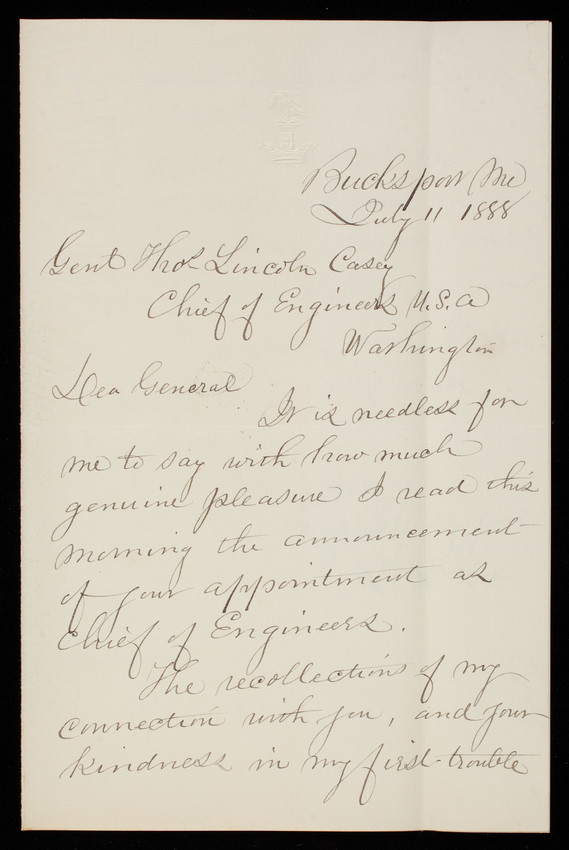 Bucksport Me
July 11 1888
Genl Thos Lincoln Casey
Chief of Engineers U.S.A
Washington
Dea General
It is needless for
me to say with how much
genuine pleasure I read this
morning the announcement
of your appointment as
Chief of Engineers.
The recollections of my
connection with you, and your
kindness in my first trouble